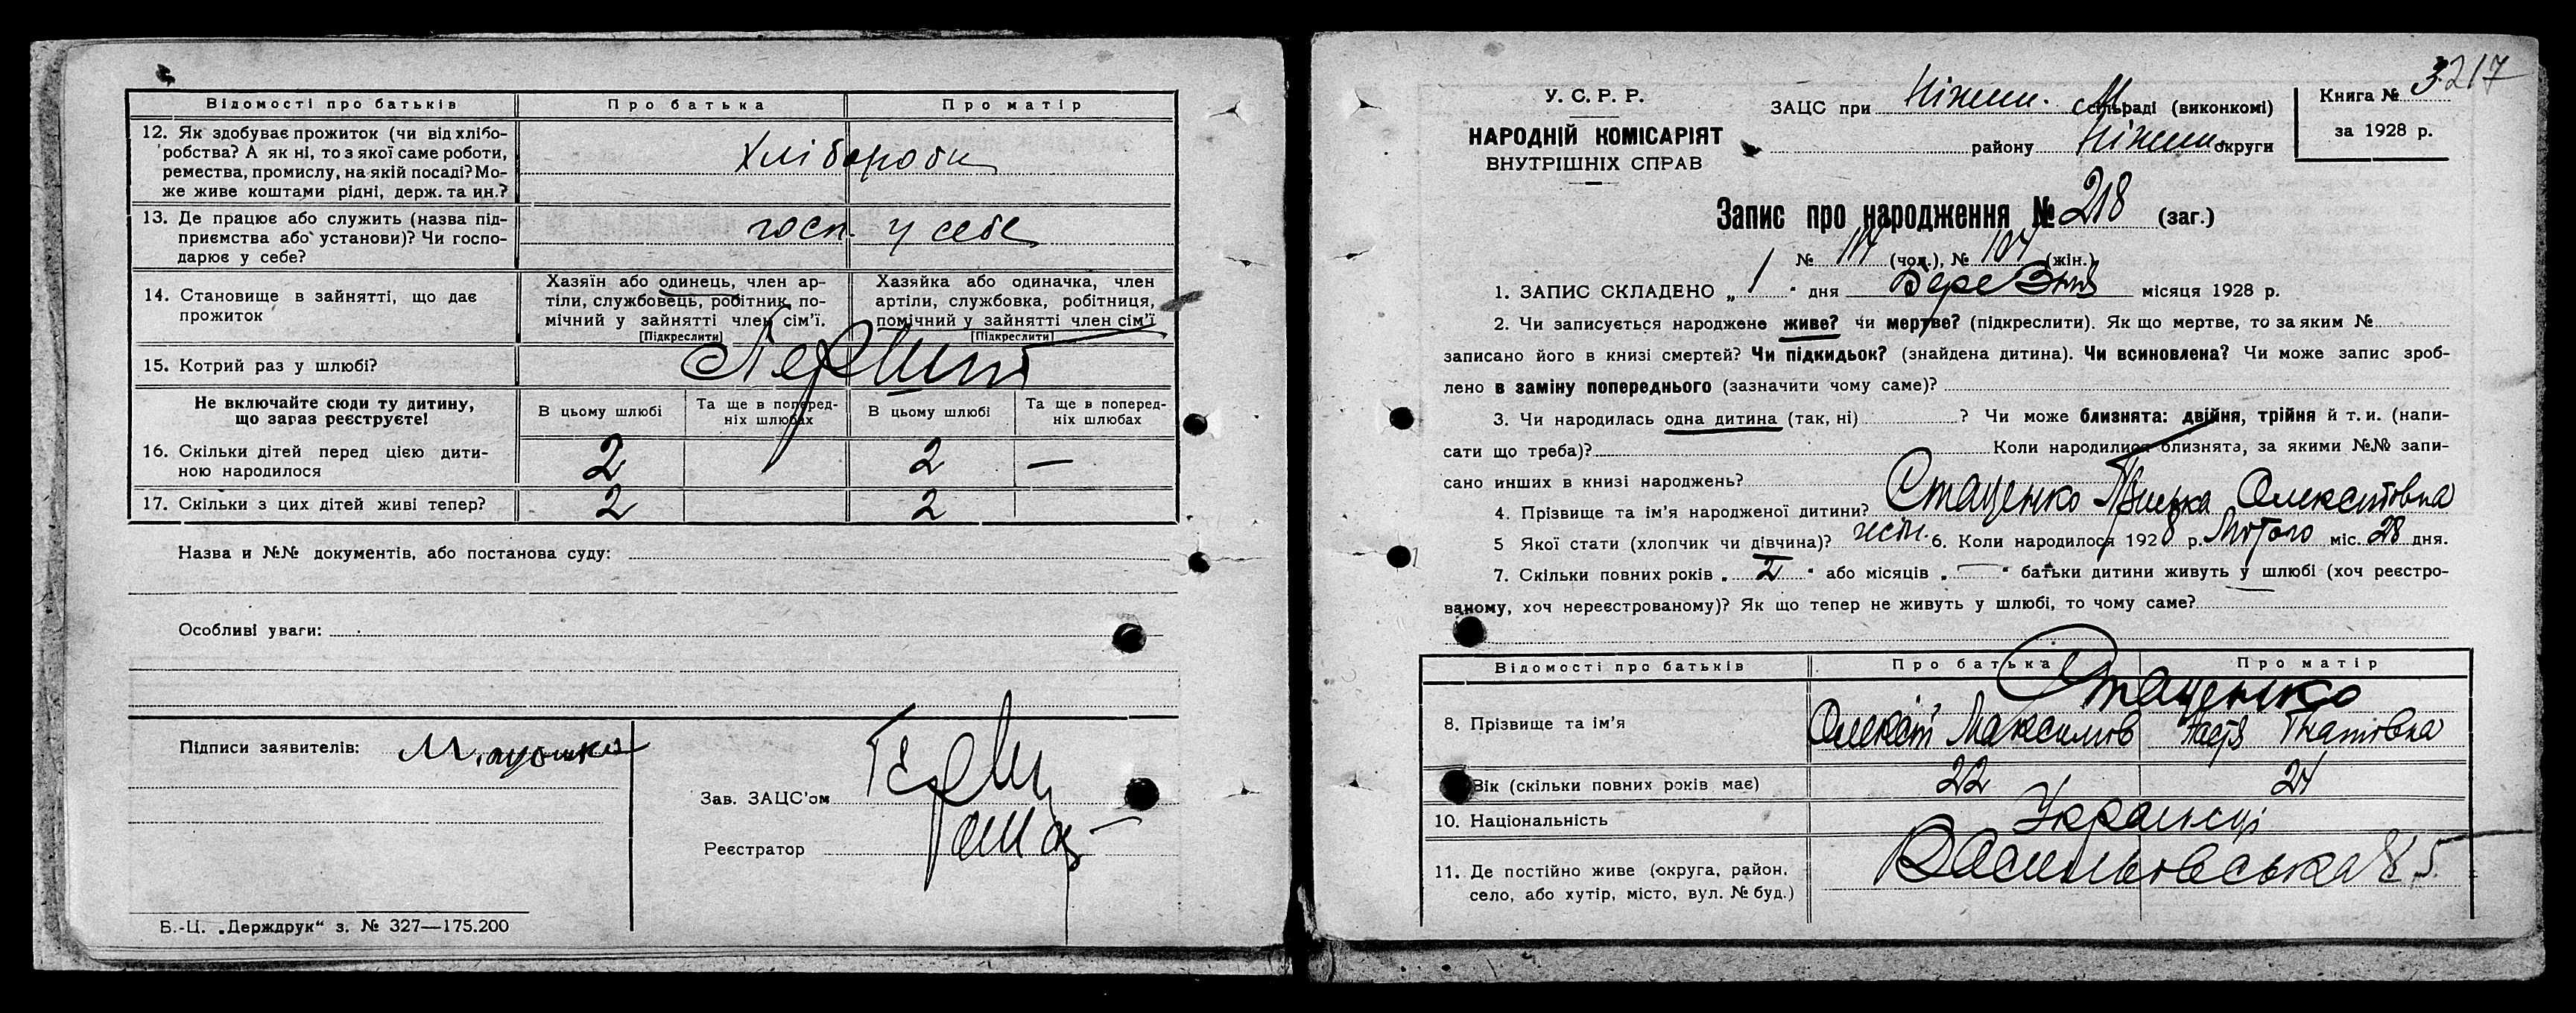 Відомості про батьків
Про батька
Про матір
12. Як здобуває прожиток (чи від хлібо-
робства? А як ні, то з якої саме роботи,
ремества, промислу, на якій посаді? Мо-
же живе коштами рідні, держ. та ин.?
Хлібороби
13. Де працює або служить (назва під-
приємства або установи)? Чи госпо-
дарює у себе?
госп. у себе
14. Становище в зайнятті, що дає
прожиток
Хазяїн або одинець, член ар-
тіли, службовець, робітник, по-
мічний у зайнятті член сім'ї.
[Підкреслити]
Хазяйка або одиначка, член
артіли, службовка, робітниця,
помічний у зайнятті член сім'ї
[Підкреслити]
15. Котрий раз у шлюбі?
Перший
Не включайте сюди ту дитину,
що зараз реєструєте!
В цьому шлюбі
Та ще в поперед-
ніх шлюбах
В цьому шлюбі
Та ще в поперед-
ніх шлюбах
16. Скільки дітей перед цією дити-
ною народилося
2 2 —
17. Скільки з цих дітей живі тепер?
2 2
Назва и №№ документів, або постанова суду:
Особливі уваги:
Підписи заявителів:
Зав. ЗАЦС'ом
Реєстратор
Б.-Ц. „Держдрук“ з. № 327—175.200
3217
У. С. Р. Р.
НАРОДНІЙ КОМІСАРІЯТ
ВНУТРІШНІХ СПРАВ
ЗАЦС при Ніжин. сільраді (виконкомі)
району Ніжин. округи
Книга № 3
за 1928 р.
Запис про народження № 218 (заг.)
№ 114 (чол.), № 104 (жін.)
1. ЗАПИС СКЛАДЕНО „ 1 “ дня Березня місяця 1928 р.
2. Чи записується народжене живе? чи мертве? (підкреслити). Як що мертве, то за яким №
записано його в книзі смертей? Чи підкидьок? (знайдена дитина). Чи всиновлена? Чи може запис зроб-
лено в заміну попереднього (зазначити чому саме)?
3. Чи народилась одна дитина (так, ні) ? Чи може близнята: двійня, трійня й т. и. (напи-
сати що треба)? Коли народилися близнята, за якими №№ запи-
сано инших в книзі народжень?
4. Прізвище та ім'я народженої дитини? Стаценко Олексіївна
5 Якої стати (хлопчик чи дівчина)? жін. 6. Коли народилося 1928 р. Лютого міс. 28 дня.
7. Скільки повних років „ 2 “ або місяців „ — “ батьки дитини живуть у шлюбі (хоч реєстро-
ваному, хоч нереєстрованому)? Як що тепер не живуть у шлюбі, то чому саме?
Відомості про батьків
Про батька
Про матір
8. Прізвище та ім'я
Стаценко
Олексій Максимов Настя Гнатовна
Вік (скільки повних років має)
22 24
10. Національність
Українці
11. Де постійно живе (округа, район,
село, або хутір, місто, вул. № буд.)
Васильовська 85